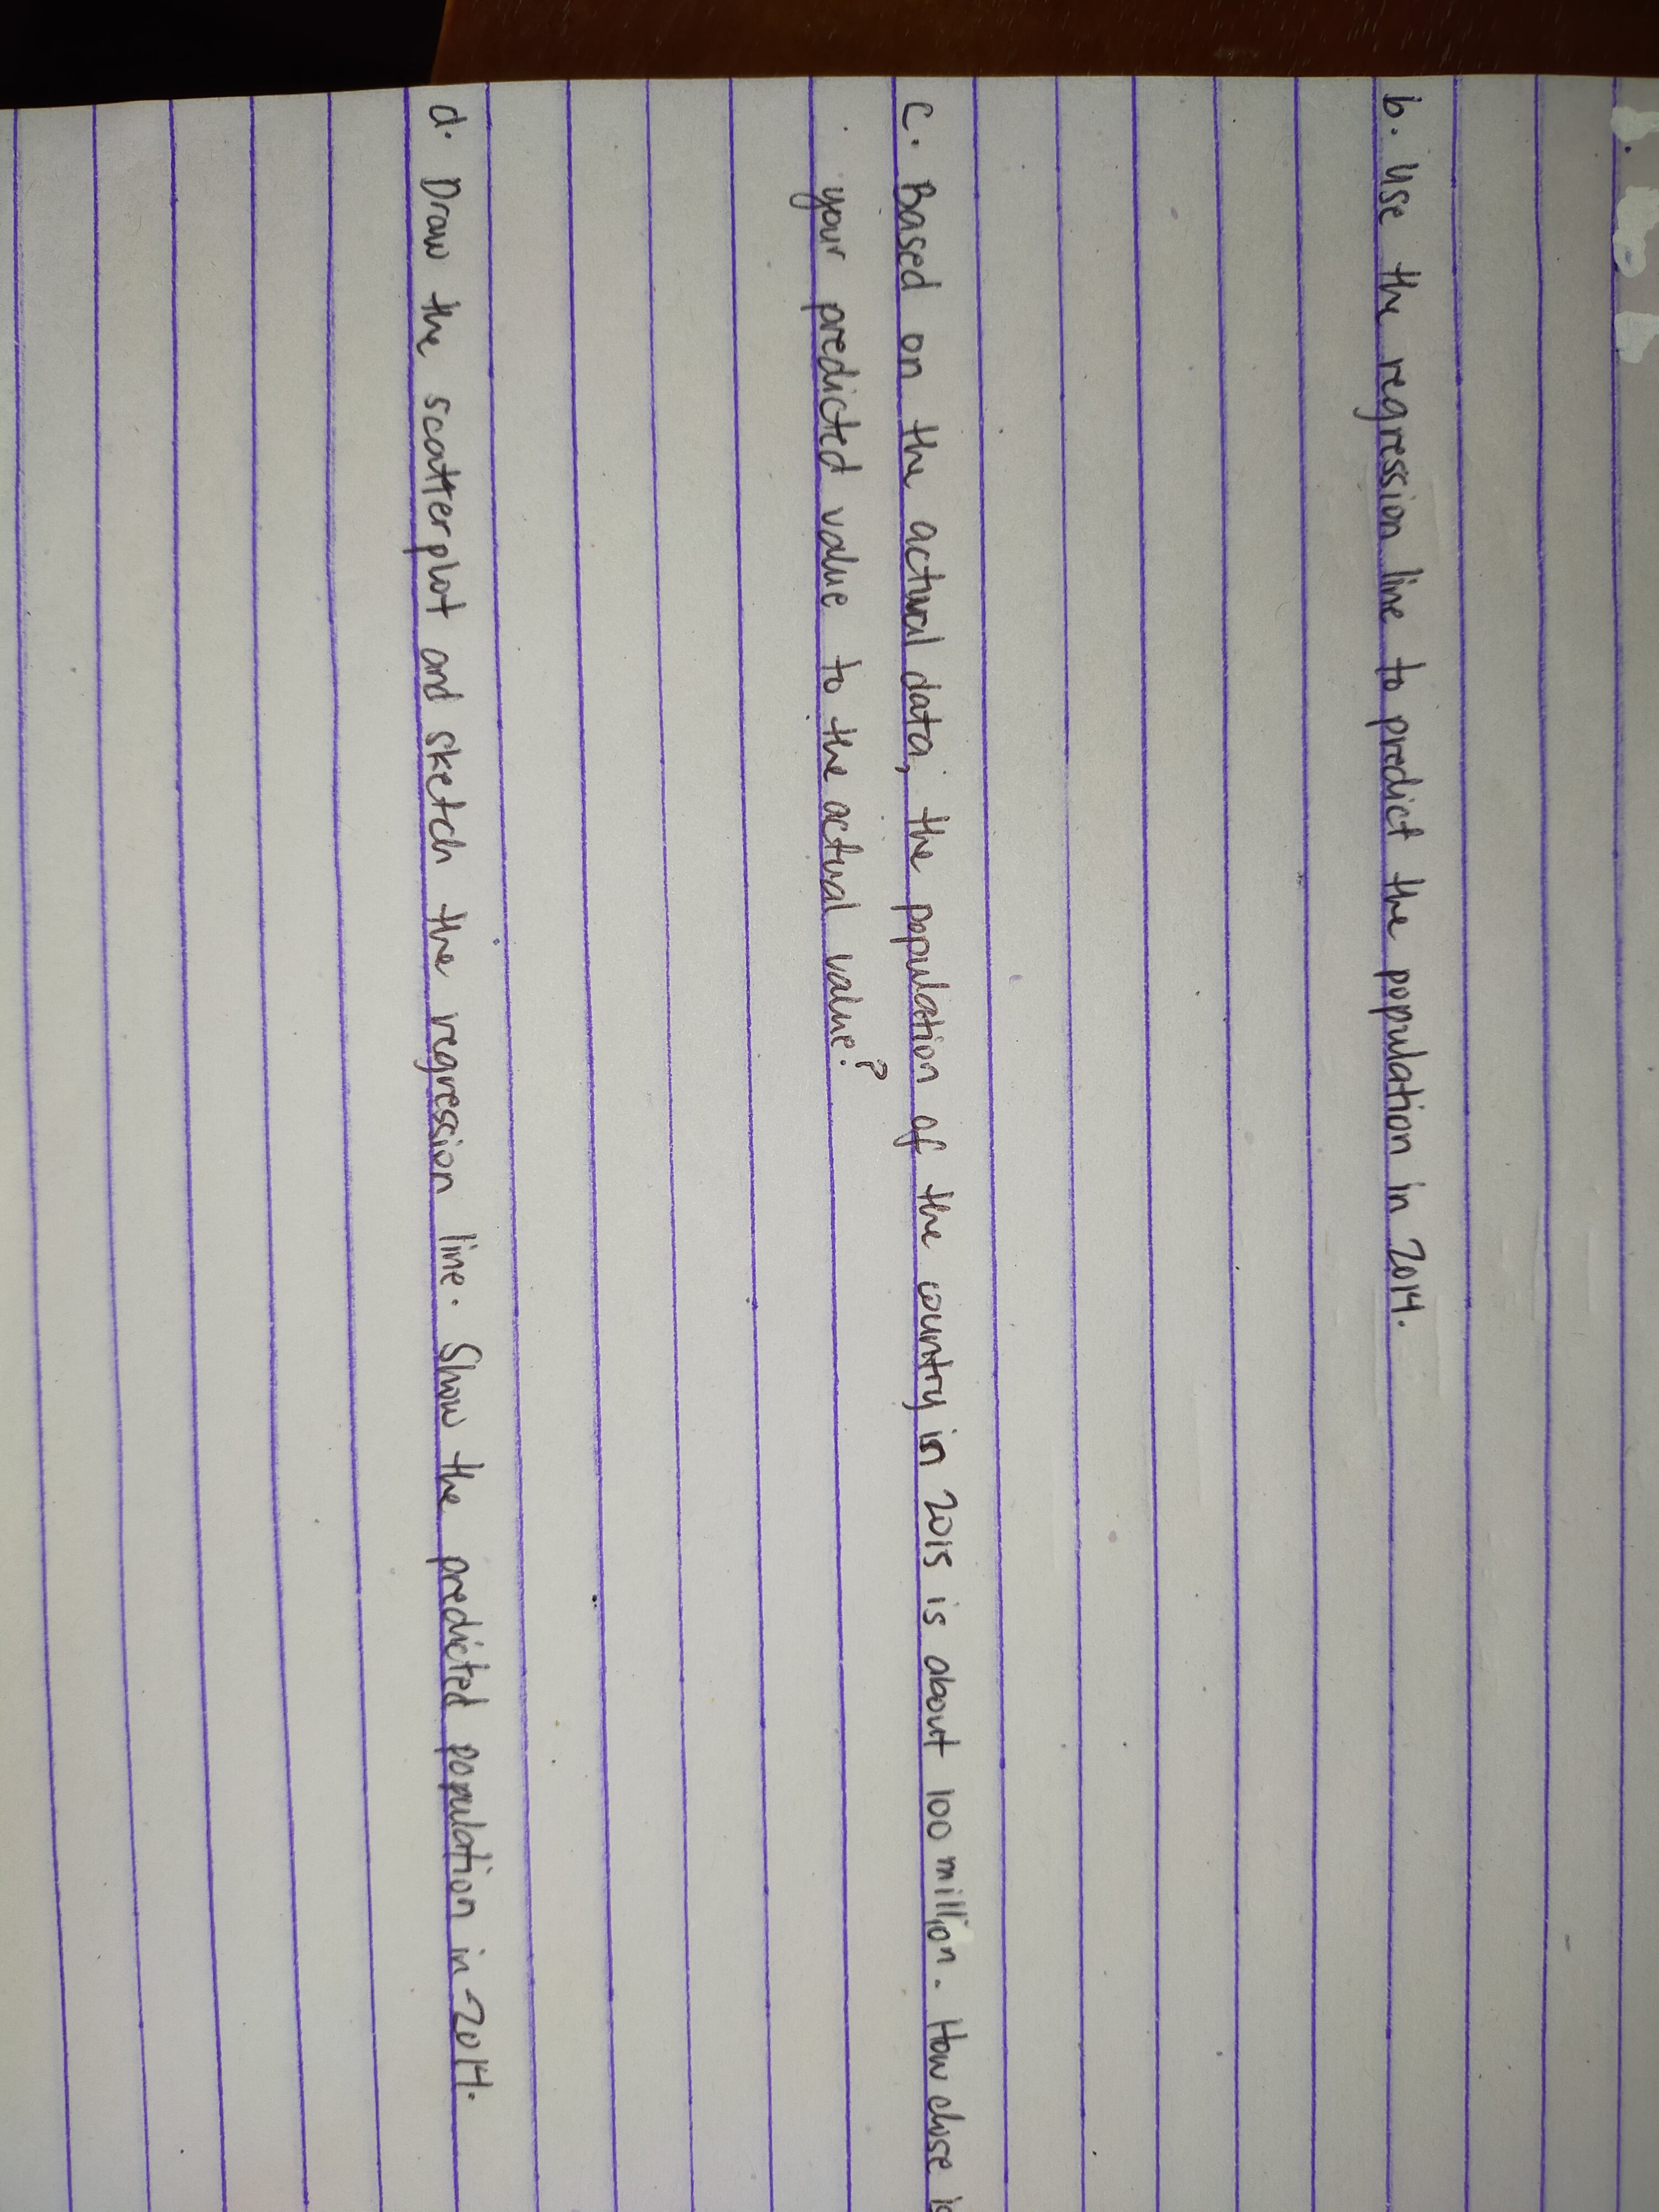 b. Use the regression line to predict the population in 2014.
c. Based on the actual data, the population of the country in 2015 is about 100 million. How close is
your predicted value to the actual value?
d. Draw the scatterplot and sketch the regression line. Show the predicted population in 2014.